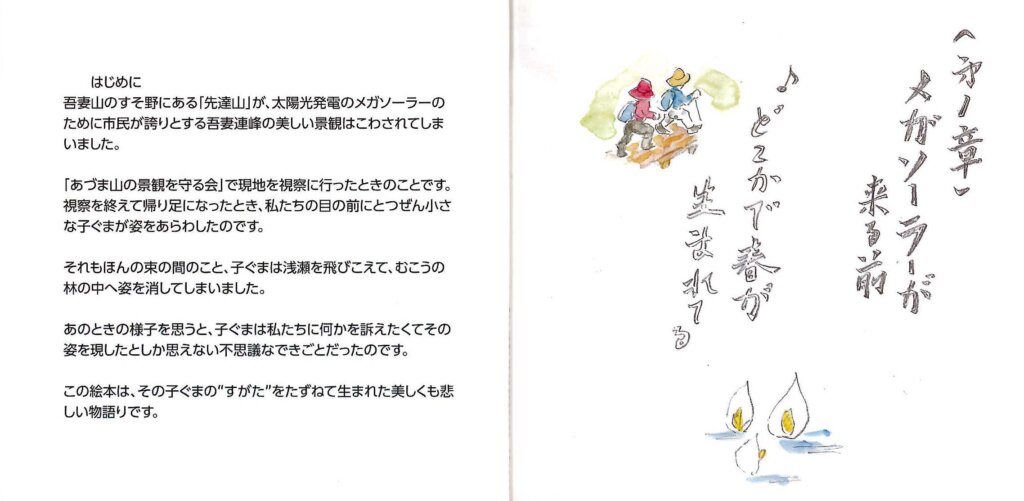 はじめに
吾妻山のすそ野にある「先達山」が、太陽光発電のメガソーラーの
ために市民が誇りとする吾妻連峰の美しい景観はこわされてしま
いました。
「あづま山の景観を守る会」で現地を視察に行ったときのことです。
視察を終えて帰り足になったとき、私たちの目の前にとつぜん小さ
な子ぐまが姿をあらわしたのです。
それもほんの束の間のこと、子ぐまは浅瀬を飛びこえて、むこうの
林の中へ姿を消してしまいました。
あのときの様子を思うと、子ぐまは私たちに何かを訴えたくてその
姿を現したとしか思えない不思議なできごとだったのです。
この絵本は、その子ぐまの“すがた”をたずねて生まれた美しくも悲
しい物語りです。
〈第1章〉
メガソーラーが
来る前
♪どこかで春が
生まれてる